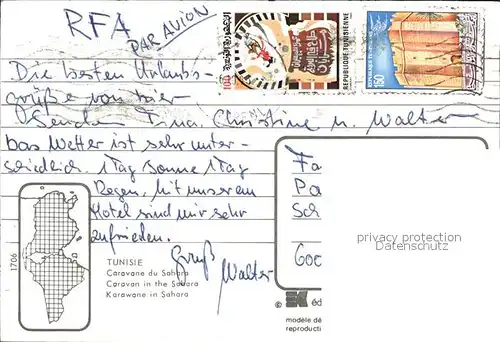 RFA
PAR AVION
100
REPUBLIQUE TUNISIENNE
150
Die besten Urlaubs-
grüße von hier
Senden Tina, Christine u. Walter
Das Wetter ist sehr unter-
schiedlich. 1 Tag Sonne 1 Tag
Regen. Mit unserem
Hotel sind wir sehr
zufrieden.
Gruß
Walter
1706
TUNISIE
Caravane du Sahara
Caravan in the Sahara
Karawane in Sahara
Fa
Pa
Sch
privacy protection
Datenschutz
© éd
modèle dé
reproducti